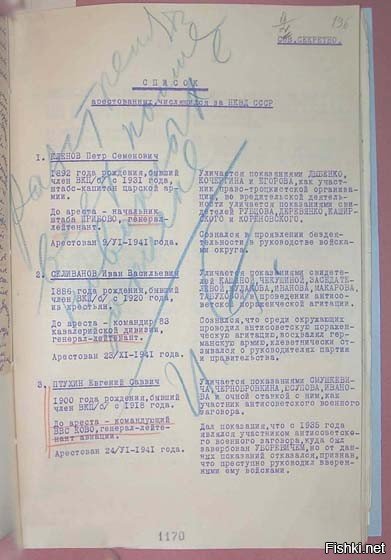 196
СОВ.СЕКРЕТНО.
СПИСОК
арестованных, числящихся за НКВД СССР
Расстрелять
1. КЛЕНОВ Петр Семенович
1892 года рождения, бывший
член ВКП/б/ с 1931 года,
штабс-капитан царской ар-
мии.
До ареста - начальник
штаба ПРИБОВО, генерал-
лейтенант.
Арестован 9/VI-1941 года.
Уличается показаниями
КОЧЕРГИНА и ЕГОРОВА, как участ-
ник право-троцкистской организа-
ции, во вредительской деятель-
ности уличается показаниями сви-
детелей РУБЦОВА, ДЕРЕВЯНКО, КАШИР-
СКОГО и КОРЕНОВСКОГО.
Сознался в проявлении бездея-
тельности в руководстве войска-
ми округа.
2. СЕЛИВАНОВ Иван Васильевич
1886 года рождения, бывший
член ВКП/б/ с 1920 года,
из крестьян.
До ареста - командир 83
кавалерийской дивизии,
генерал-лейтенант.
Арестован 23/XI-1941 года.
Уличается показаниями свидете-
ИВАНОВА, МАКАРОВА,
в проведении антисо-
ветской пораженческой агитации.
Сознался, что среди окружающих
проводил антисоветскую поражен-
ческую агитацию, восхвалял гер-
манскую армию, клеветнически от-
зывался о руководителях партии
и правительства.
3. ПТУХИН Евгений Саввич
1900 года рождения, бывший
член ВКП/б/ с 1918 года.
До ареста - командующий
ВВС КОВО, генерал-лейте-
нант авиации.
Арестован 24/VI-1941 года.
Уличается показаниями СМУШКЕВИ-
ЧА, ЧЕРНОБРОВКИНА, ЮСУПОВА, ИВАНО-
ВА и очной ставкой с ним, как
участник антисоветского военного
заговора.
Дал показания, что с 1935 года
являлся участником антисоветско-
го военного заговора, куда был
завербован УБОРЕВИЧЕМ, но от дан-
ных показаний отказался, признав,
что преступно руководил вверен-
ными ему войсками.
1170
Fishki.net